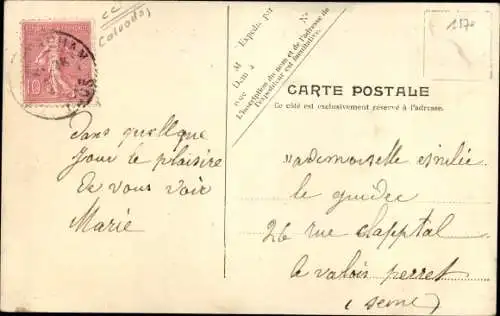 CC
(Calvados)
1570
10
Expédié par
M
Dem à
rue
N°
L'inscription du nom et de l'adresse de
l'expéditeur est facultative.
CARTE POSTALE
Ce côté est exclusivement réservé à l'adresse.
Dans quellque
Jour le plaisire
De vous voir
Marie
Mademoiselle emilie
le guidée
26 rue chapptal
a valois perret
(seine)